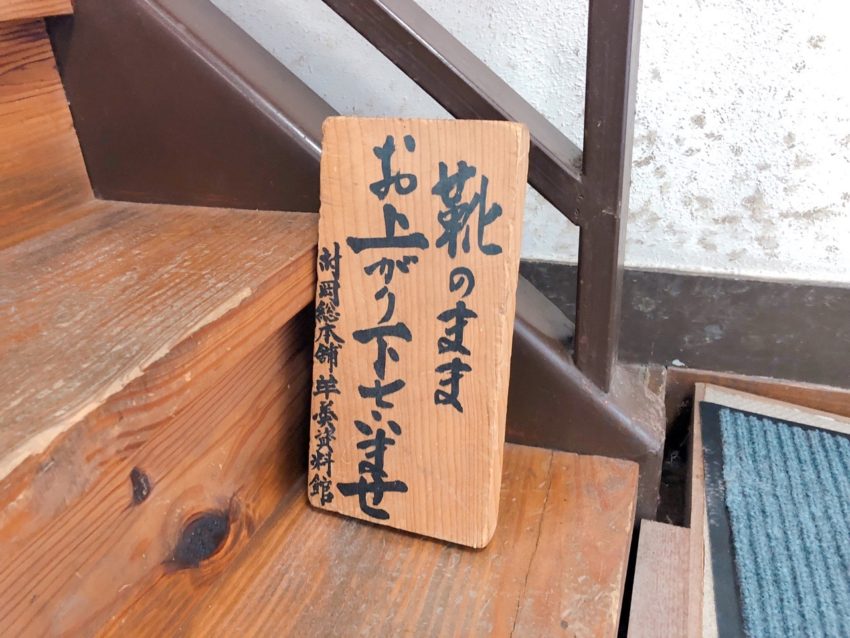 靴のまま
お上がり下さいませ
村岡総本舗羊羹資料館